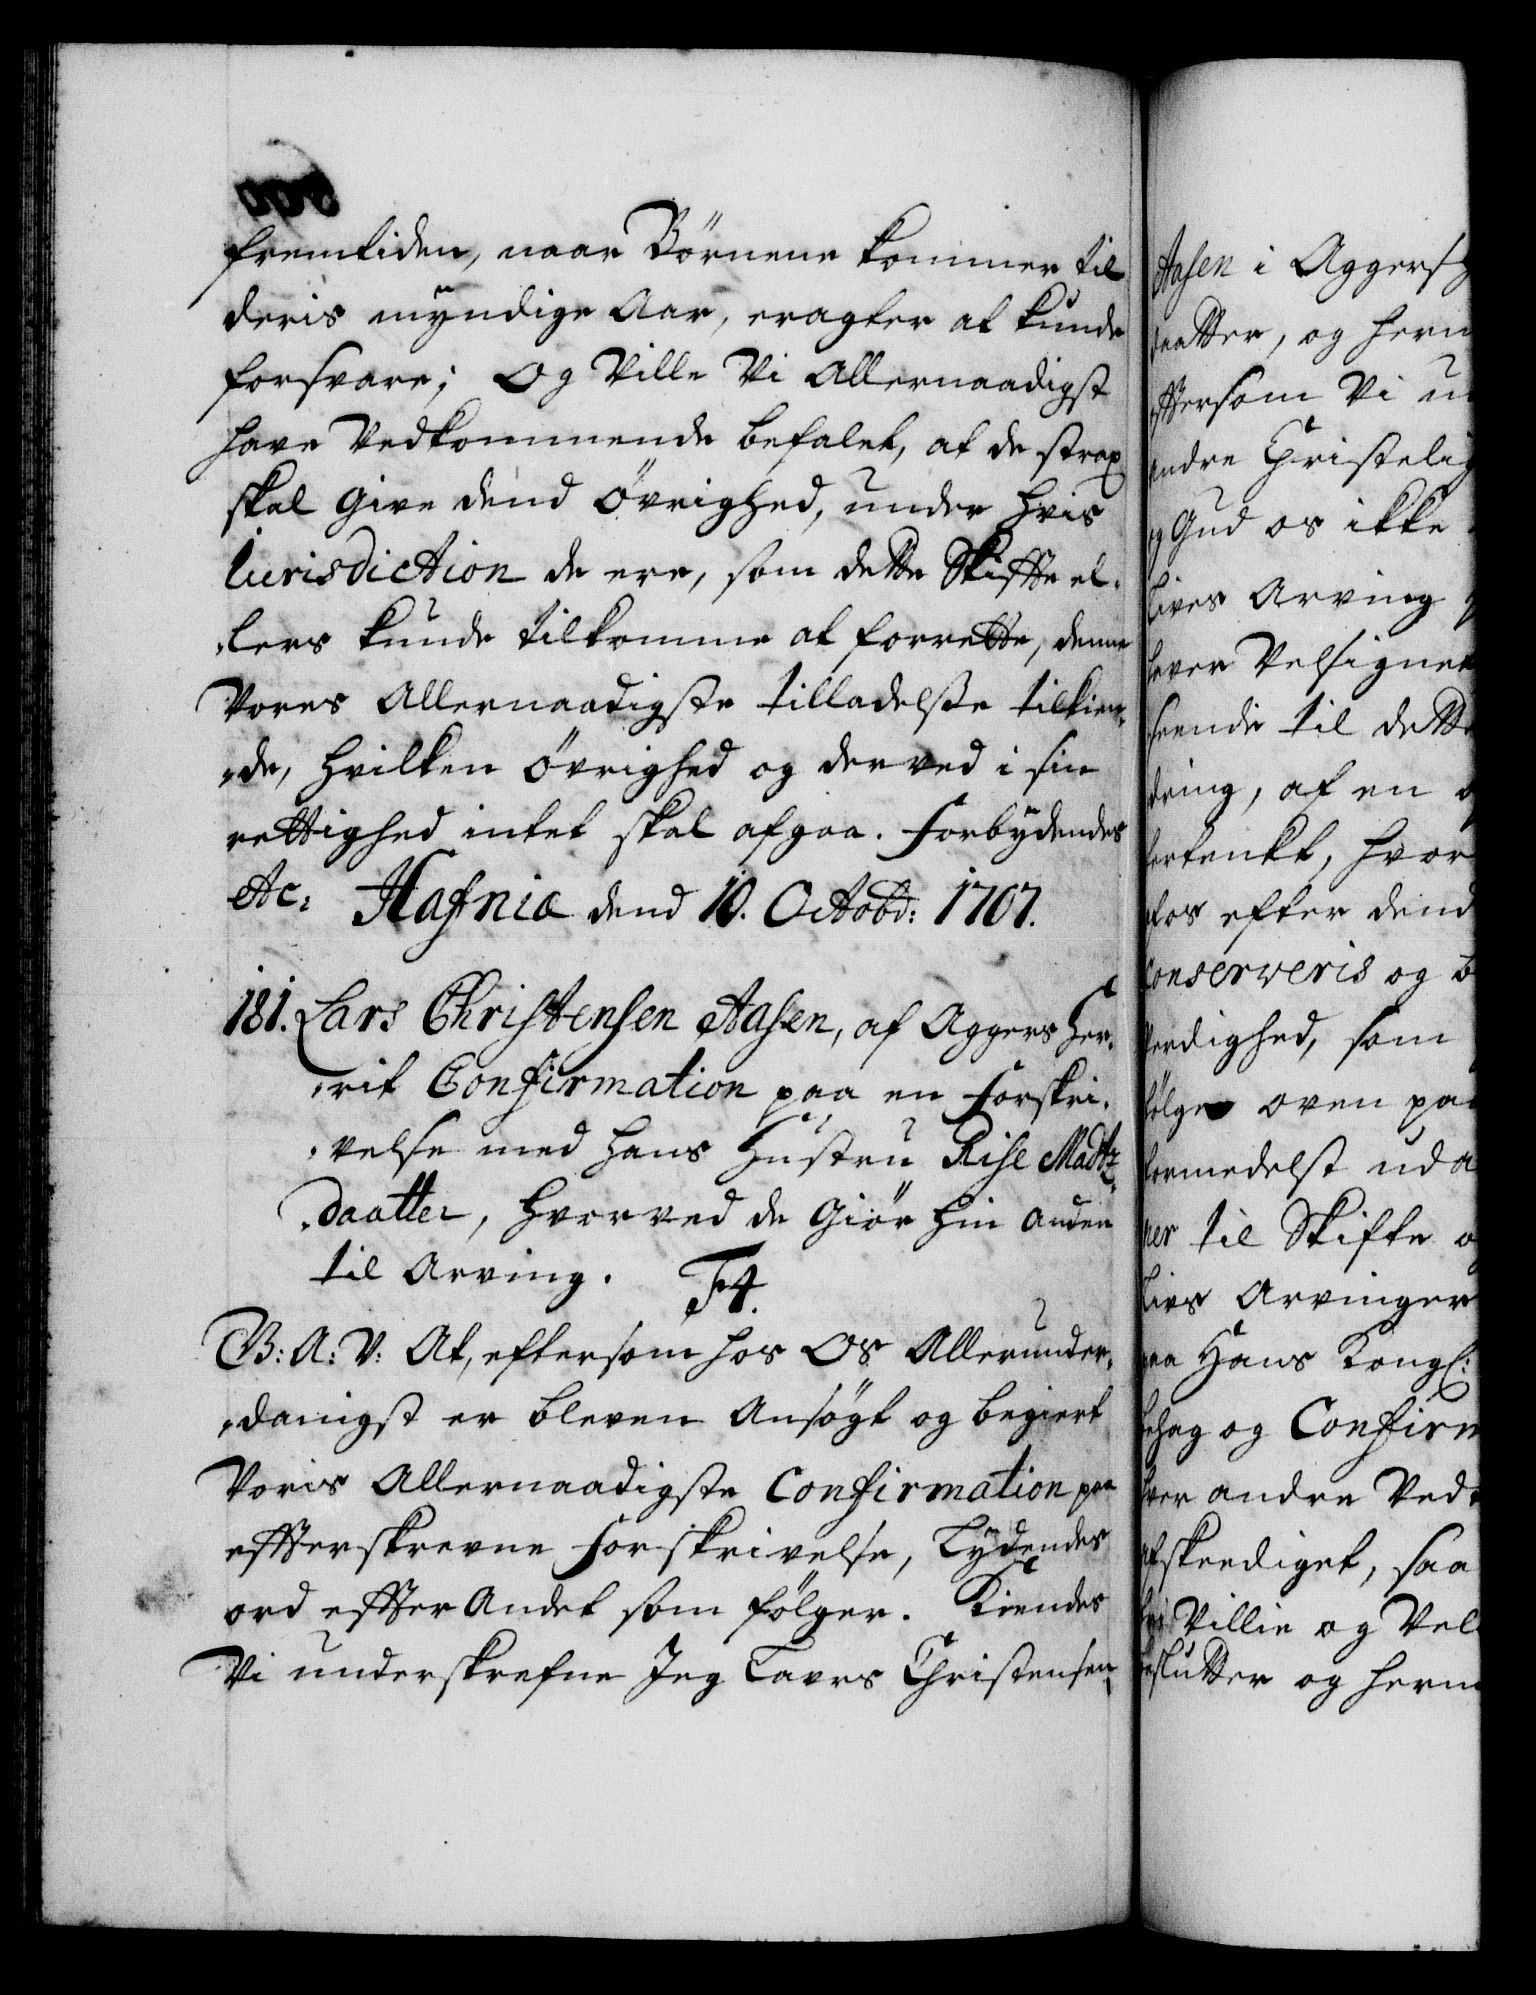 fremtiden, naar Börnene kommer til
deris myndige Aar, eragter at kunde
forsvare; Og Ville Vi Allernaadigst
have Vedkommende befalet, at de strax
skal Give dend Övrighed, under hvis
Iurisdiction de ere, som dette Skiffte el-
lers kunde tilkomme at forrette, denne
Vores Allernaadigste tilladelsse tilkien-
de, hvilken Övrighed og derved i sin
rettighed intet skal afgaa. Forbydendes
etc: Hafniæ dend 10. Octobr: 1707.
181. Lars Christensen Aasen, af Aggers Her-
rit Confirmation paa en Forskri-
velse med hans Hustru Rise Madtz-
daatter, hvorved de Giör hin anden
til Arving. F4.
G: A: V: At, eftersom hos Os Allerunder-
danigst er bleven Ansögt og begiert
Voris Allernaadigste Confirmation paa
effterskrevne Forskrivelse, Lydendes
ord effter Andet som fölger. Kiendes
Vi underskrefne Jeg Lavrs Christensen
Aasen i Aggers
daatter, og herm
effersom Vi
andre Christelig
og Gud os ikke
Lives Arving
haver Velsignet
seende til dette
dring, at en
fertenkt, hvor
os efter dend
conserveris og b
Verdighed, som
fölger oven paa
formedelst
ner til Skifte o
Livs Arvinger
paa Hans Kongl:
behag og Confirm
hver andre Ved
afskeediget, saa
fri Villie og Vel
beslutter og herm